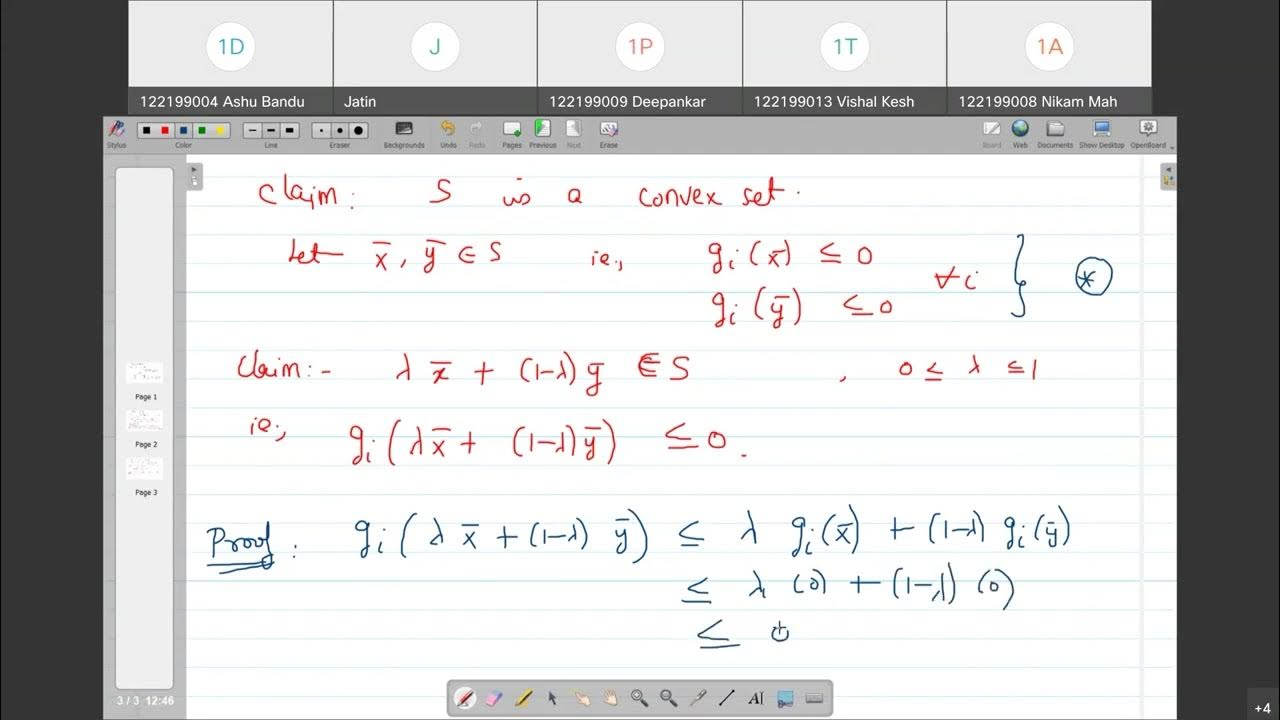 1D J 1P 1T 1A
122199004 Ashu Bandu Jatin 122199009 Deepankar 122199013 Vishal Kesh 122199008 Nikam Mah
Stylus Color Line Eraser Backgrounds Undo Redo Pages Previous Next Erase Board Web Documents Show Desktop OpenBoard
Claim: S is a convex set.
Let x̄, ȳ ∈ S ie., gᵢ(x̄) ≤ 0
∀i } ⊛
gᵢ(ȳ) ≤ 0
Claim:- λ x̄ + (1-λ) ȳ ∈ S , 0 ≤ λ ≤ 1
ie., gᵢ(λx̄ + (1-λ)ȳ) ≤ 0.
Proof: gᵢ(λ x̄ + (1-λ) ȳ) ≤ λ gᵢ(x̄) + (1-λ) gᵢ(ȳ)
≤ λ (0) + (1-λ) (0)
≤ 0
Page 1
Page 2
Page 3
3 / 3 12:46
AI
+4